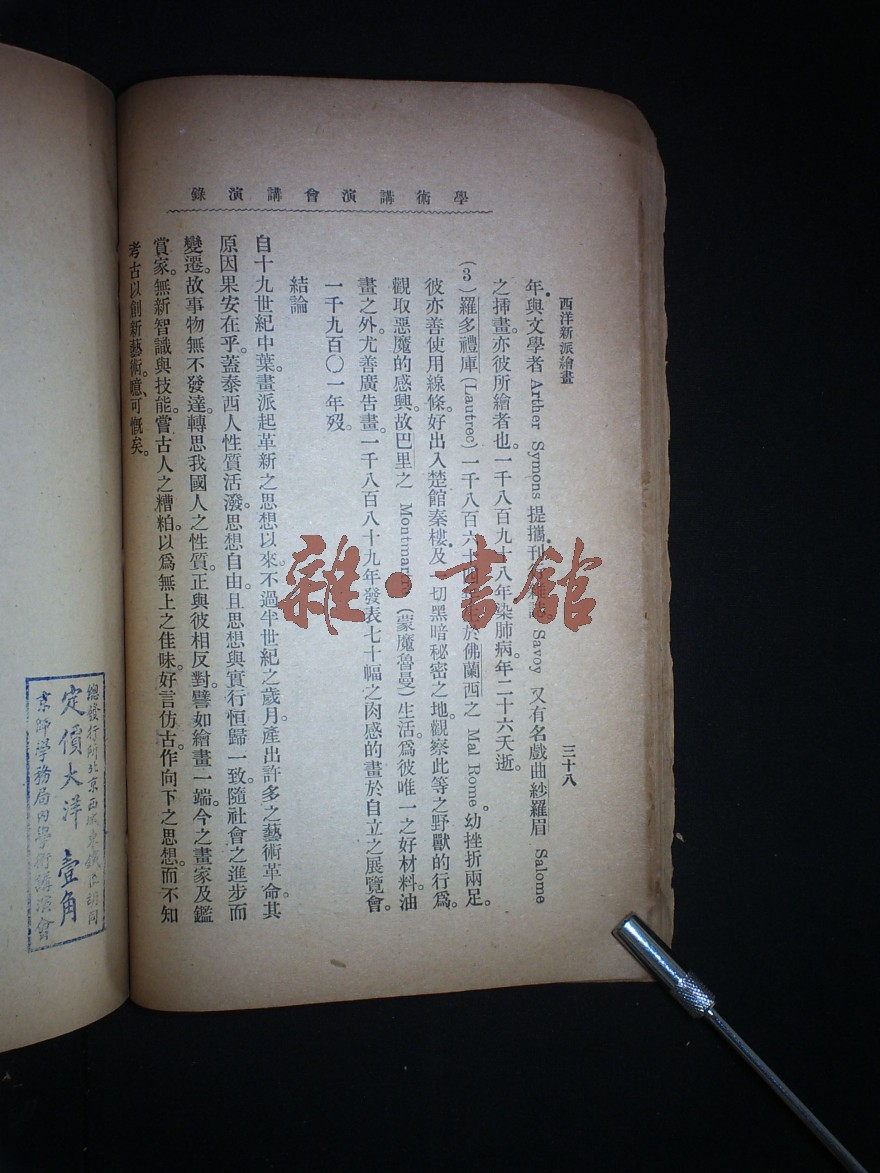 學術講演會講演錄
西洋新派繪畫
三十八
年與文學者 Arther Symons 提攜刊 Savoy 又有名戲曲紗羅眉 Salome
之揷畫。亦彼所繪者也。一千八百九十八年染肺病。年二十六夭逝。
(3)羅多禮庫(Lautrec)一千八百六十四 於佛蘭西之 Mal Rome。幼挫折兩足。
彼亦善使用線條。好出入楚館秦樓。及一切黑暗秘密之地。觀察此等之野獸的行爲。
觀取惡魔的感興。故巴里之 Montmartre (蒙魔魯曼)生活。爲彼唯一之好材料。油
畫之外。尤善廣告畫。一千八百八十九年發表七十幅之肉感的畫於自立之展覽會。
一千九百〇一年歿。
結論
自十九世紀中葉。畫派起革新之思想以來。不過半世紀之歲月。產出許多之藝術革命。其
原因果安在乎。蓋泰西人性質活潑。思想自由。且思想與實行恒歸一致。隨社會之進步而
變遷。故事物無不發達。轉思我國人之性質。正與彼相反對。譬如繪畫一端。今之畫家及鑑
賞家。無新智識與技能。嘗古人之糟粕。以爲無上之佳味。好言仿古。作向下之思想。而不知
考古以創新藝術。噫、可慨矣。
總發行所北京西城東鐵匠胡同
定價大洋壹角
京師學務局內學術講演會
雜·書館